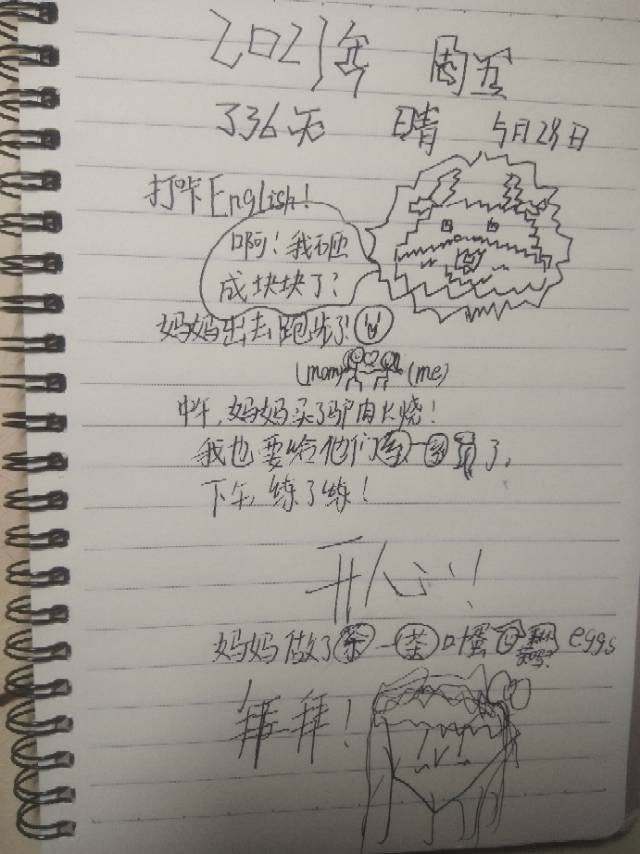 2021年 周五
336天 晴 5月28日
打咔English!
啊!我石西
成块块了?
妈妈出去跑步了!
(mom) (me)
中午,妈妈买了驴肉火烧!
我也要给他们 一 了,
下午,练了练!
开心!!
妈妈做了茶一茶叶蛋 eggs
拜拜!